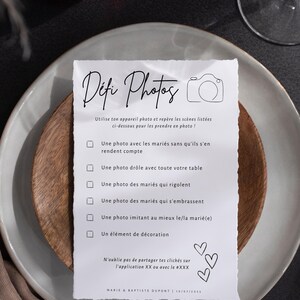 Défi Photos
Utilise ton appareil photo et repère les scènes listées
ci-dessous pour les prendre en photo !
Une photo avec les mariés sans qu'ils s'en
rendent compte
Une photo drôle avec toute votre table
Une photo des mariés qui rigolent
Une photo des mariés qui s'embrassent
Une photo imitant au mieux le/la marié(e)
Un élément de décoration
N'oublie pas de partager tes clichés sur
l'application XX ou avec le #XXX
MARIE & BAPTISTE DUPONT